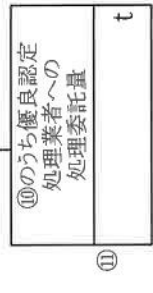 ⑩のうち優良認定
処理業者への
処理委託量
⑪
t